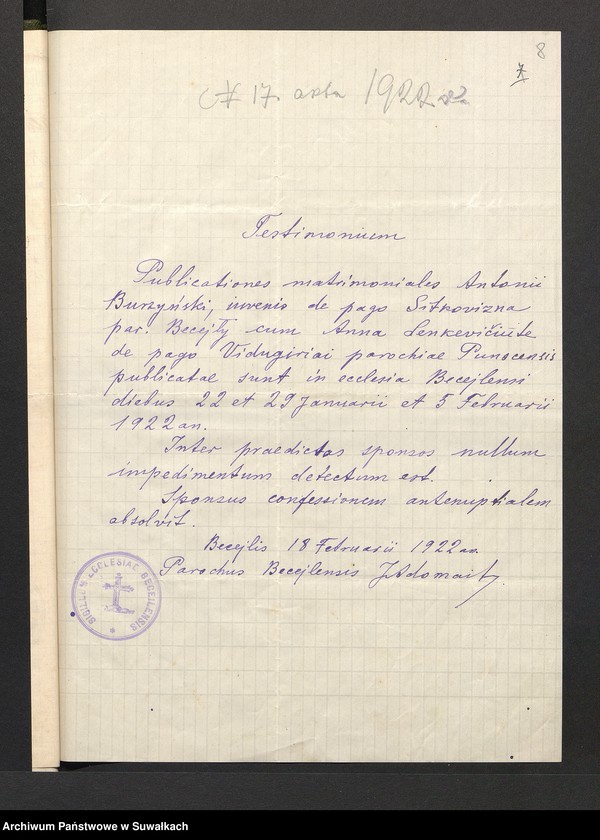 8
7
№ 17. akta 1922
Testimonium
Publicationes matrimoniales Antonii
Burzyński, iuvenis de pago Sitkovizna
par. Becejły cum Anna Lenkevičiūte
de pago Vidugiriai parochiae Punocensis
publicatae sunt in ecclesia Becejlensi
diebus 22 et 29 Januarii et 5 Februarii
1922 an.
Inter praedictos sponsos nullum
impedimentum detectum est.
Sponsus confessionem antenuptialem
absolvit.
Becejlis 18 Februarii 1922 an.
Parochus Becejlensis J. Adomaity
SIGILLUM ECCLESIAE BECEJLENSIS
Archiwum Państwowe w Suwałkach